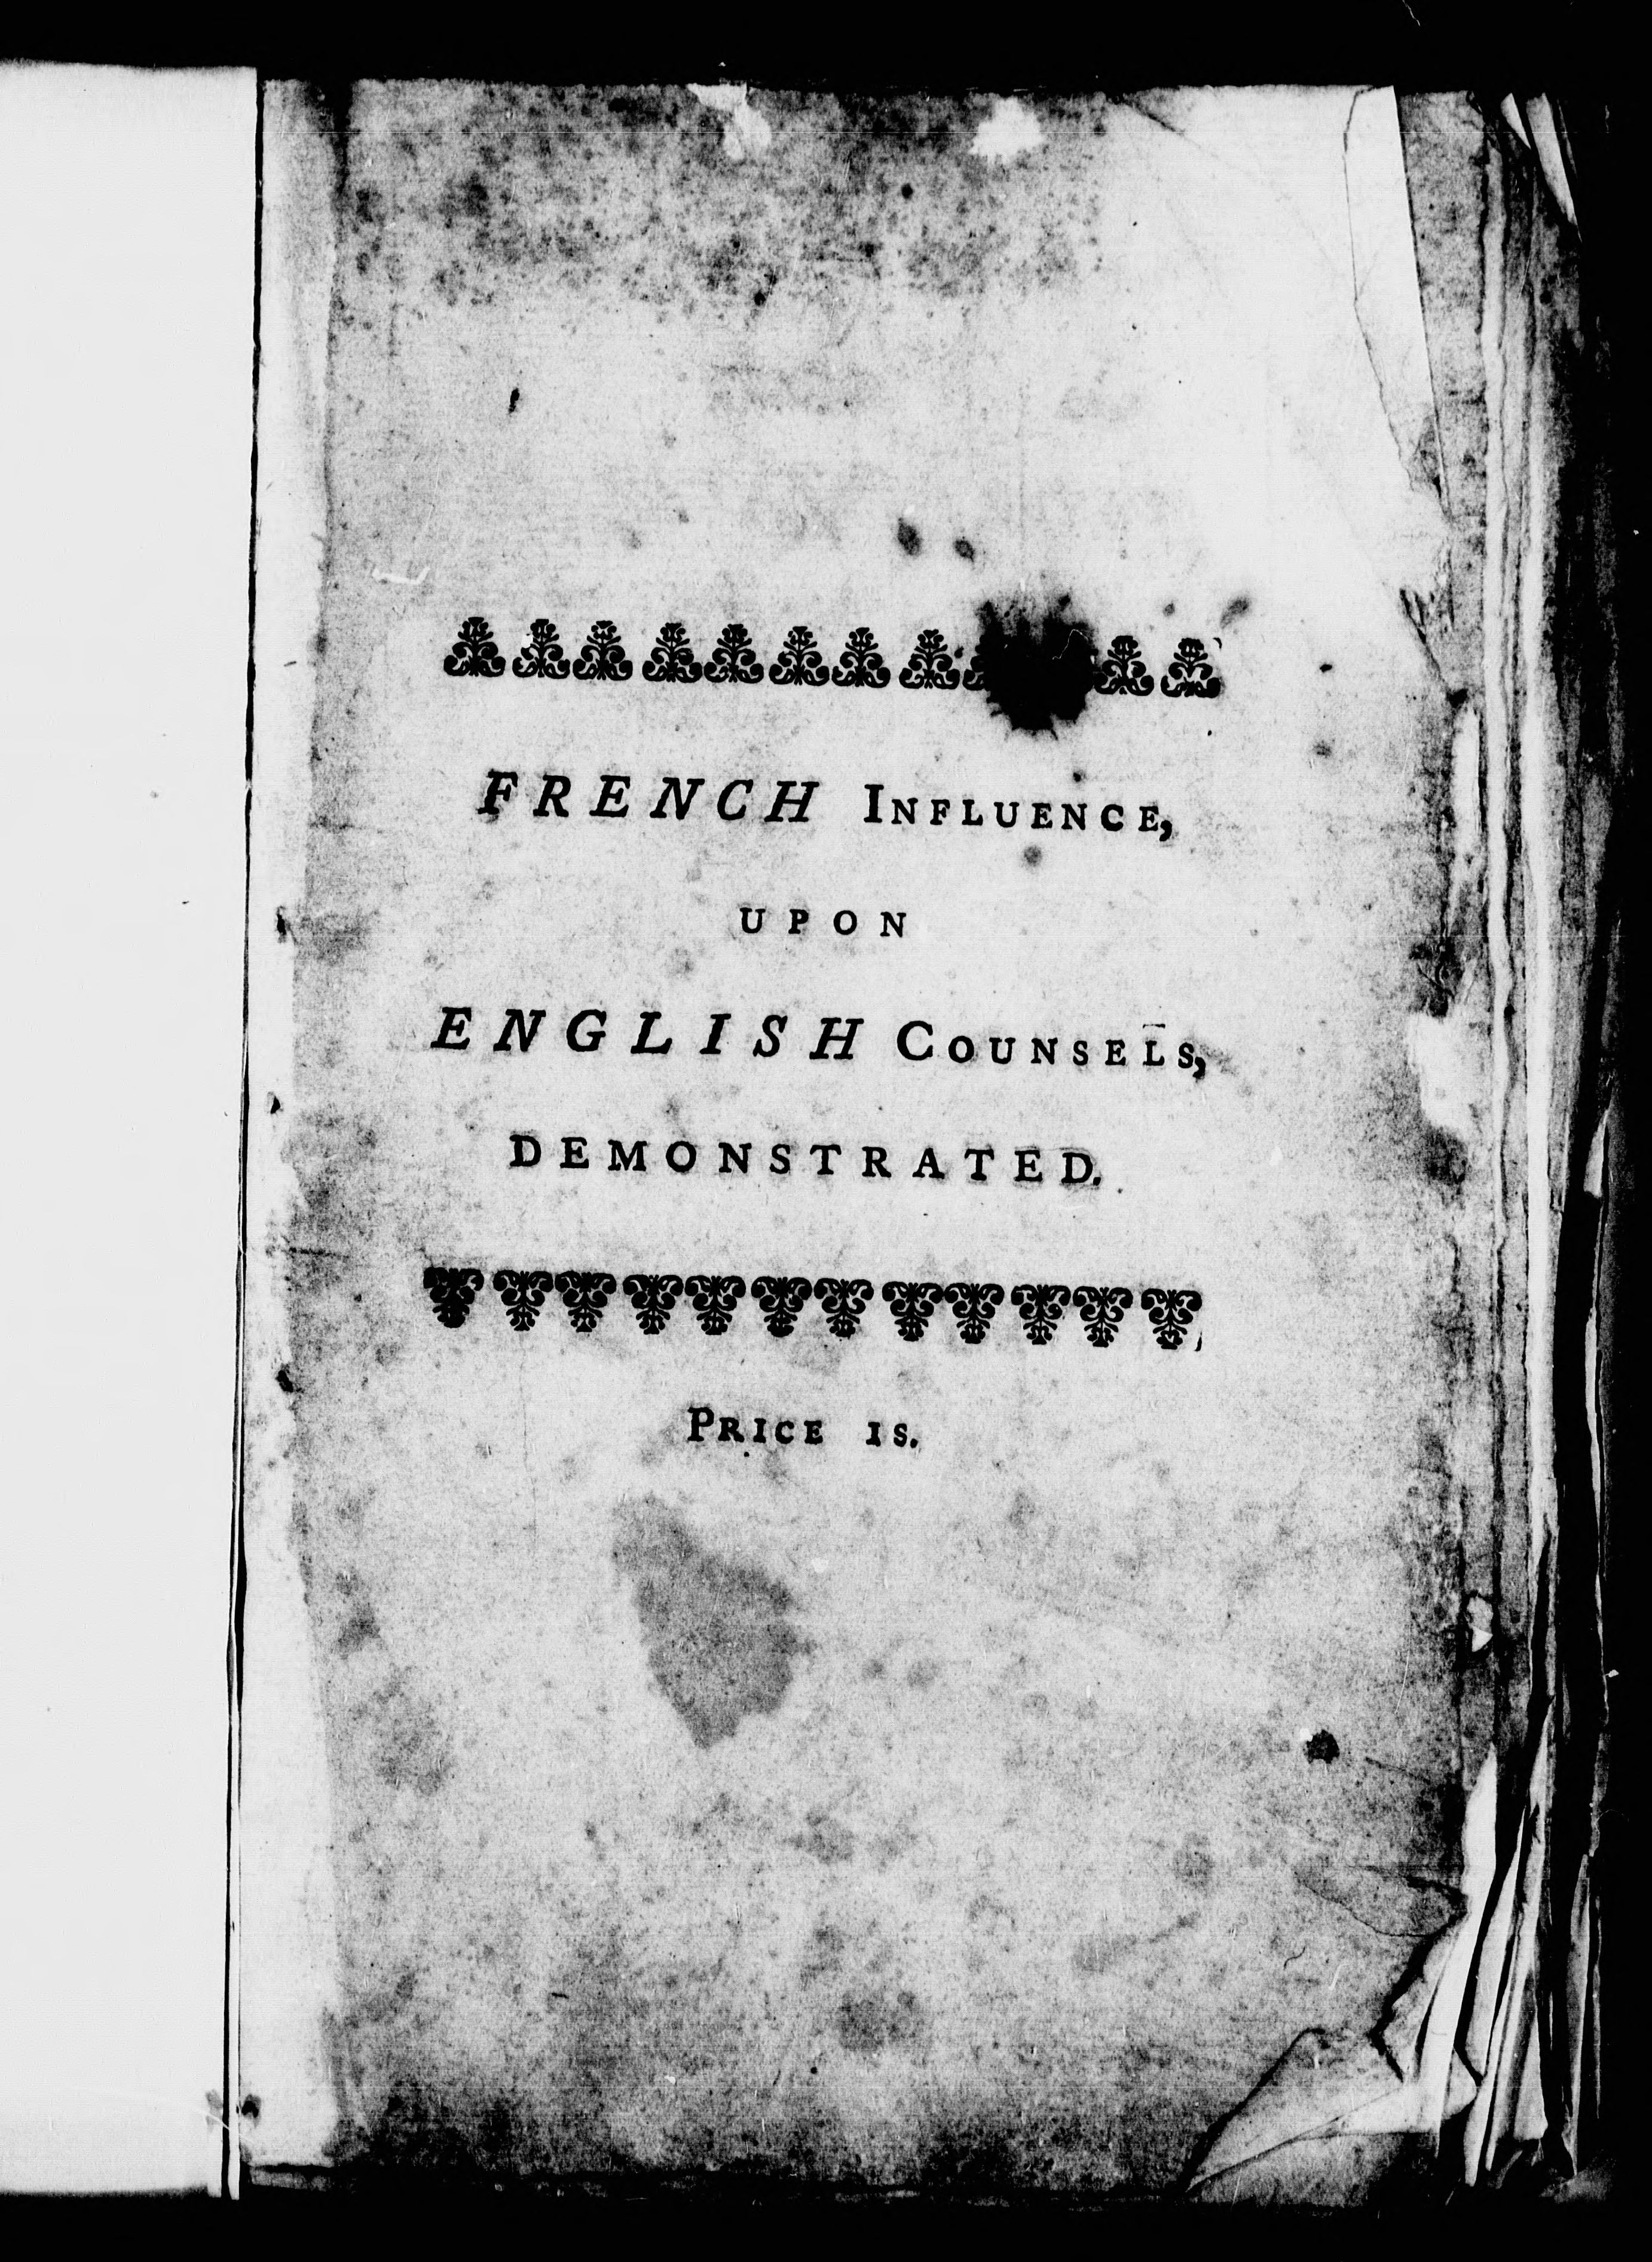 FRENCH INFLUENCE,
UPON
ENGLISH COUNSELS,
DEMONSTRATED.
PRICE 1S.